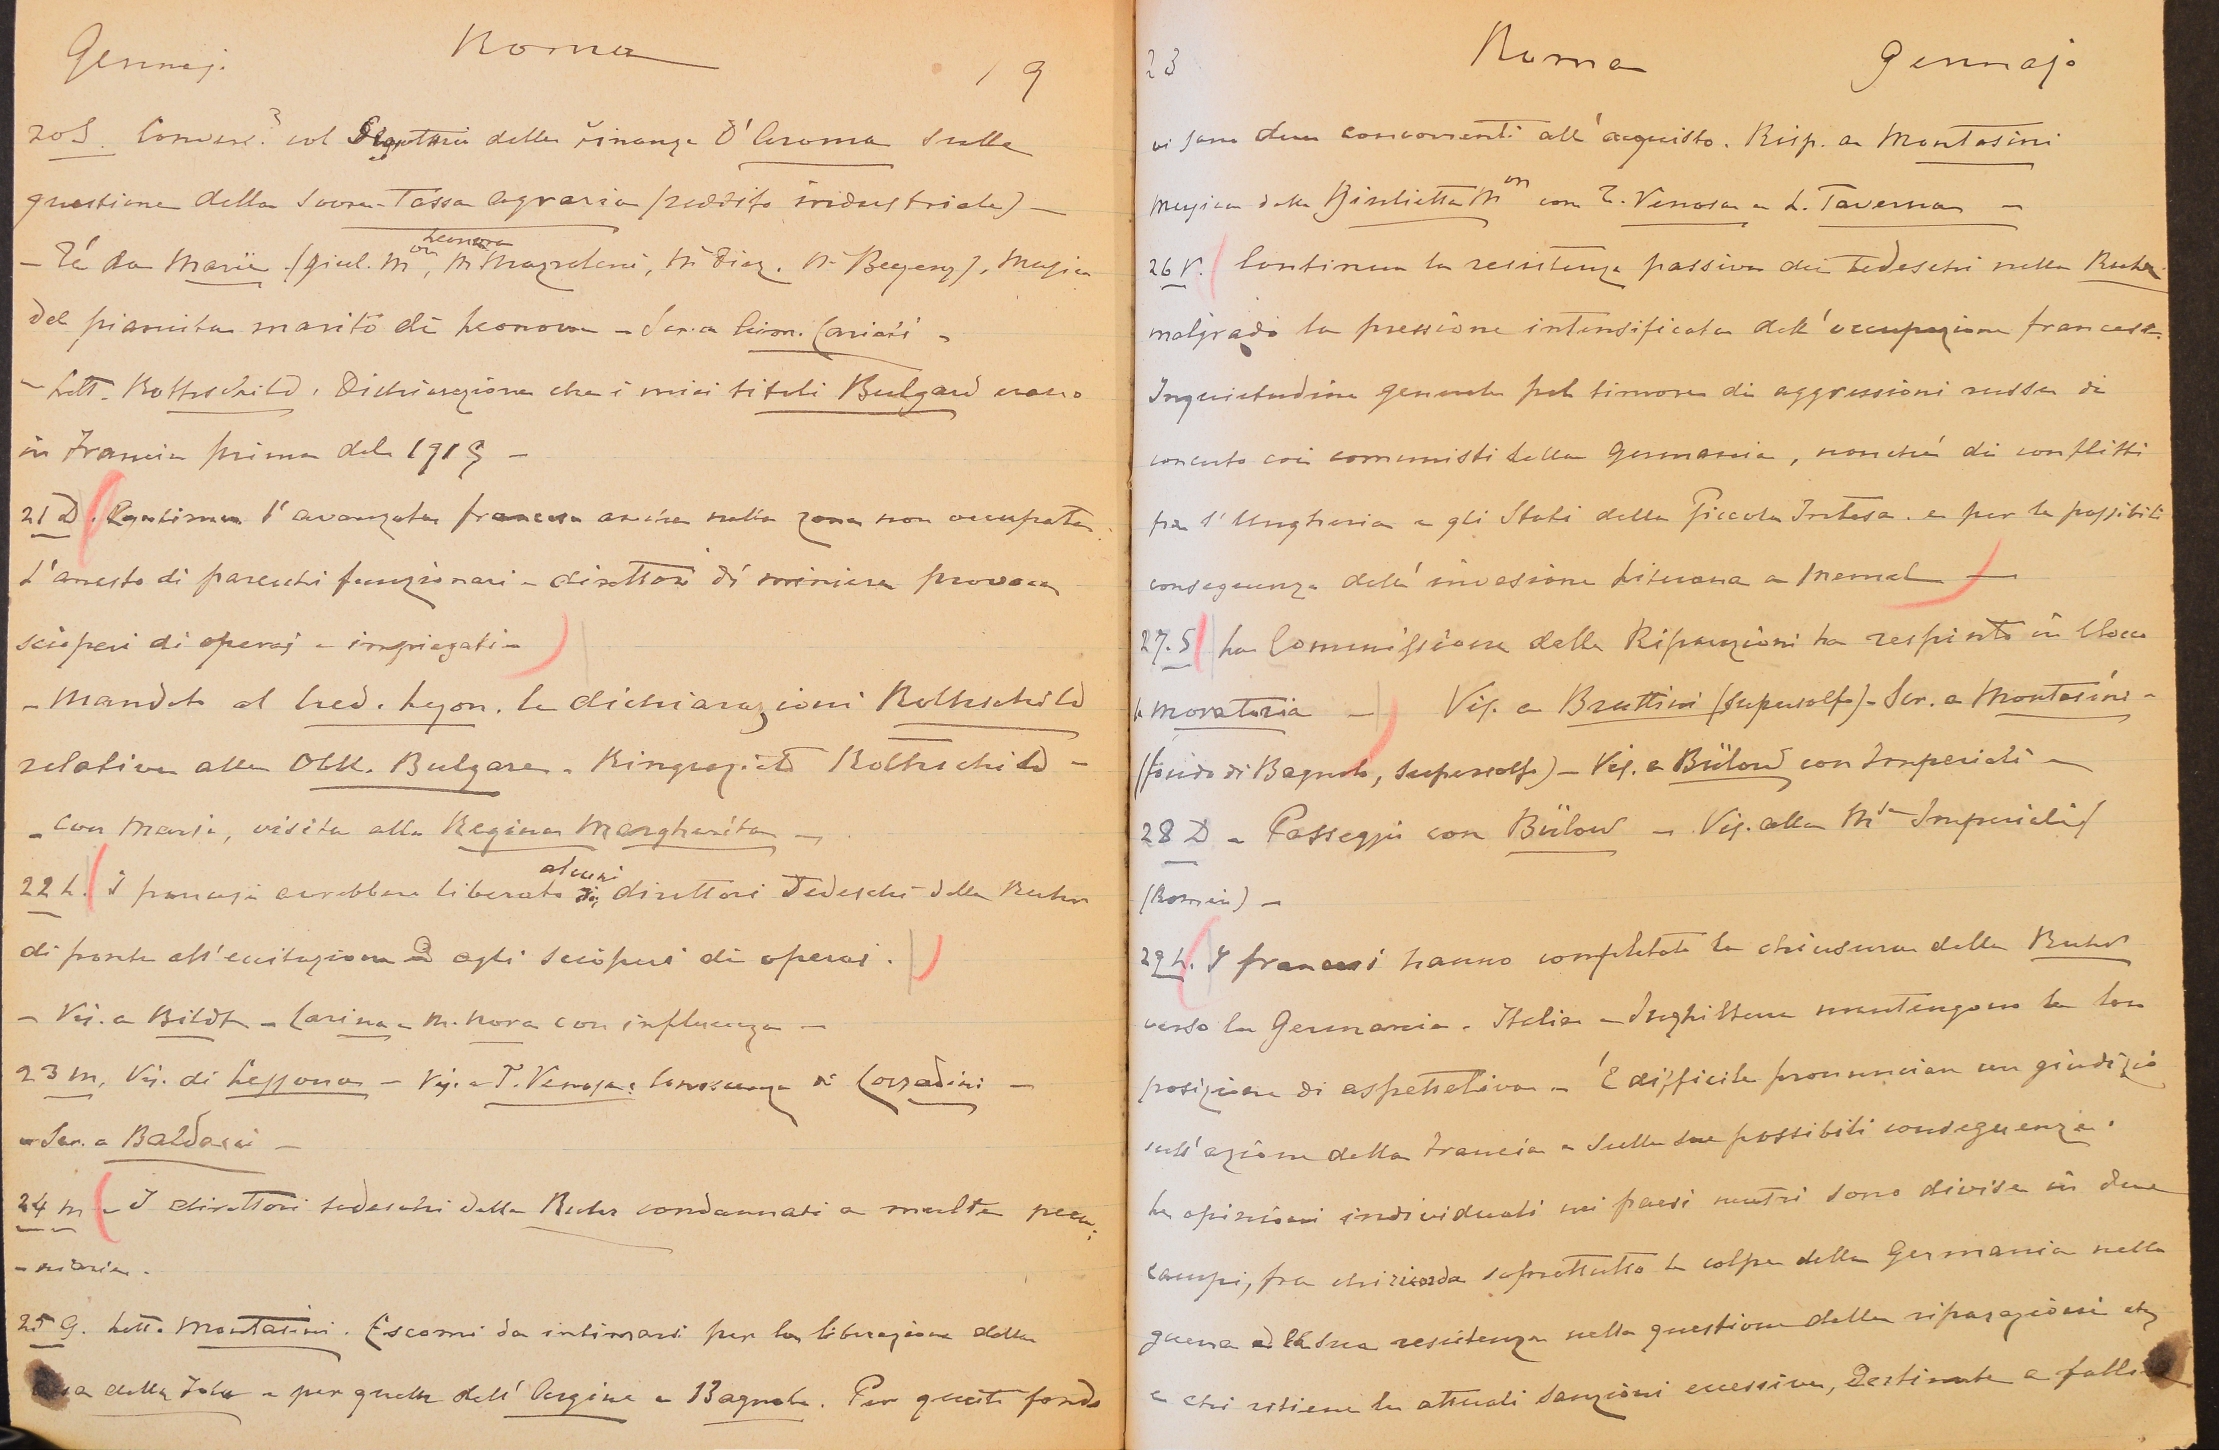 Gennaj. Roma 19
20 S. Convers.e col Segretario delle finanze D'Aroma sulla
questione della Sovra-Tassa agraria (reddito industriale) —
– Té da Maria (Giul. Mon, Leonora Mazzoleni, Diaz. Begeny). Musica
del pianista marito di Leonora – Scr. a Leon. Cariati –
– Lett. Rothschild. Dichiarazione che i miei titoli Bulgari erano
in Francia prima del 1919 –
21 D. Continua l'avanzata francese anche nella zona non occupata.
L'arresto di parecchi funzionari e direttori di miniere provoca
scioperi di operaj e impiegati –
– Mandato al Cred. Lyon. le dichiarazioni Rothschild
relative alle Obbl. Bulgare. Ringraziato Rothschild –
– con Maria, visita alla Regina Margherita –
22 L. I francesi avrebbero liberato alcuni direttori Tedeschi della Ruhr
di fronte all'eccitazione e agli scioperi di operai.
– Vis. a Bildt – Carina e M. Nora con influenza –
23 M. Vis. di Lessona – Vis. a T. Venosa: Conoscenza di Corradini –
– Scr. a Baldacci –
24 M – I direttori tedeschi della Ruhr condannati a multe pecu-
-niarie.
25 G. Lett. Montasini. Escomi da intimarsi per la liberazione della
casa della Tola e per quelle dell'Argine e Bagnolo. Per questo fondo
23 Roma Gennajo
vi sono due concorrenti all'acquisto. Risp. a Montasini
Musica dalla Giulietta Mon con T. Venosa e L. Taverna –
26 V. Continua la resistenza passiva dei Tedeschi nella Ruhr
malgrado la pressione intensificata dell'occupazione francese.
Inquietudine generale pel timore di aggressioni russe di
concerto coi comunisti della Germania, nonché di conflitti
fra l'Ungheria e gli Stati della Piccola Intesa. e per le possibili
conseguenze dell'invasione Lituana a Memel —
27. S La Commissione delle Riparazioni ha respinto in blocco
la moratoria – Vis. a Bruttini (supersolfo) – Scr. a Montasini –
(fondo di Bagnolo, supersolfo) – Vis. a Bülow con Imperiali –
28 D – Passeggio con Bülow – Vis. alla Msa Imperiali (
(Romin) –
29 L. I francesi hanno completato la chiusura della Ruhr
verso la Germania. Italia e Inghilterra mantengono la loro
posizione di aspettativa – È difficile pronunciare un giudizio
sull'azione della Francia e sulle sue possibili conseguenze.
Le opinioni individuali nei paesi neutri sono divise in due
campi, fra chi ricorda soprattutto le colpe della Germania nella
guerra e la sua resistenza nella questione delle riparazioni etc
e chi ritiene le attuali sanzioni eccessive, destinate a fallire